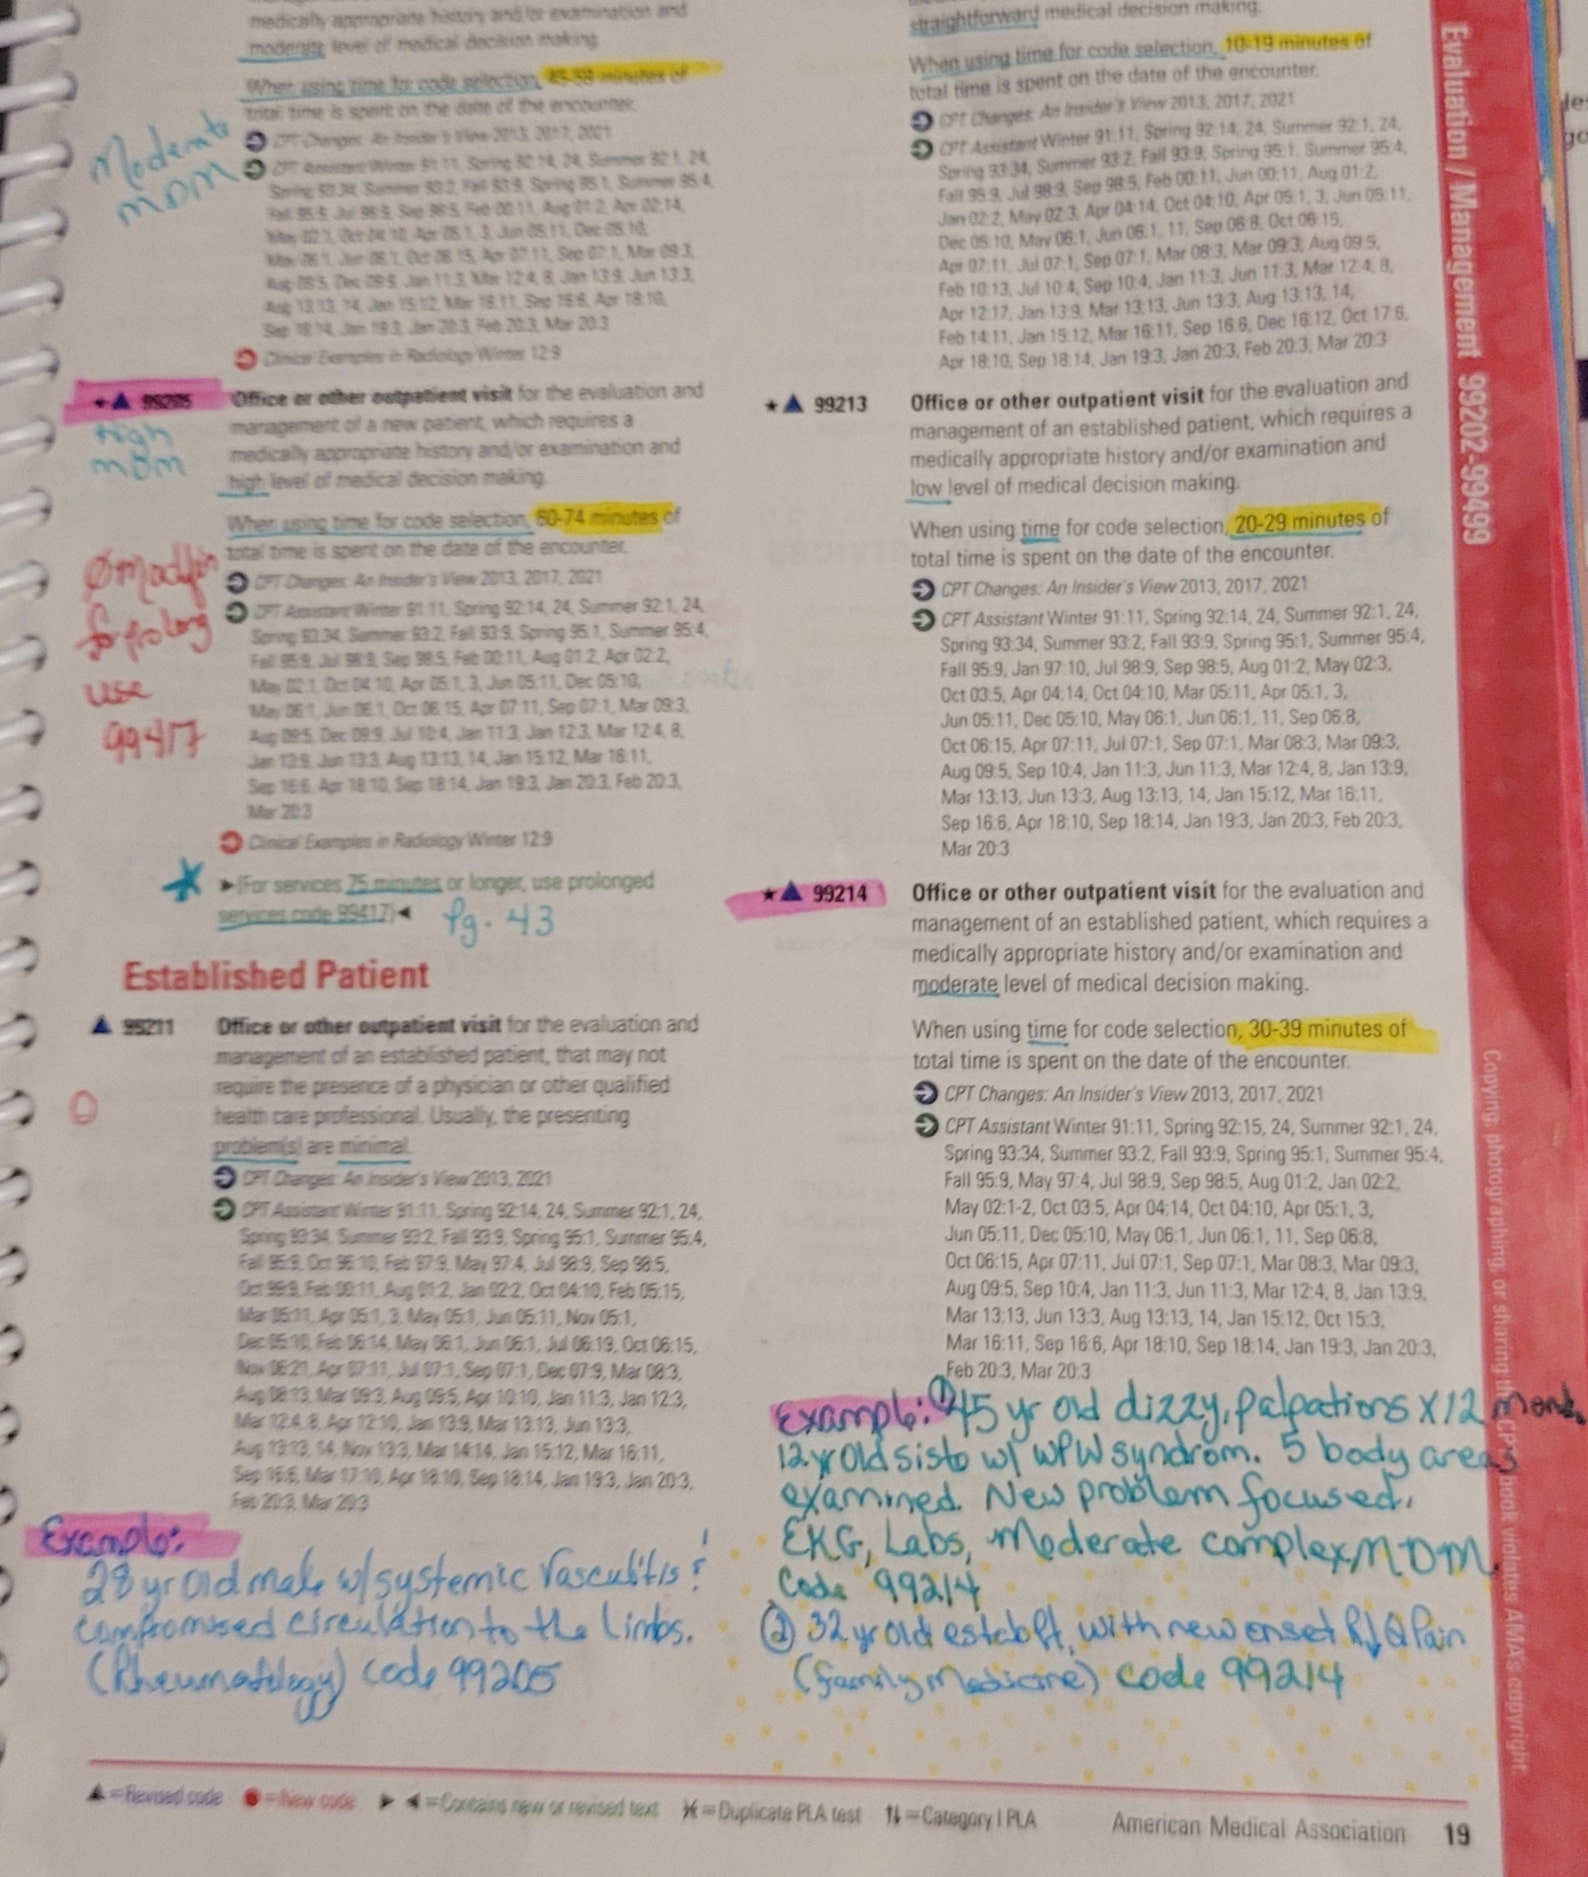 medically appropriate history and/or examination and
moderate level of medical decision making.
When using time for code selection, 45-59 minutes of
total time is spent on the date of the encounter.
CPT Changes: An Insider's View 2013, 2017, 2021
CPT Assistant Winter 91:11, Spring 92:14, 24, Summer 92:1, 24,
Spring 93:34, Summer 93:2, Fall 93:9, Spring 95:1, Summer 95:4,
Fall 95:9, Jul 98:9, Sep 98:5, Feb 00:11, Aug 01:2, Apr 02:14,
May 06:1, Jun 06:1, Oct 06:15, Apr 07:11, Sep 07:1, Mar 09:3,
Aug 09:5, Dec 09:9, Jan 11:3, Mar 12:4, 8, Jan 13:9, Jun 13:3,
Aug 13:13, 14, Jan 15:12, Mar 16:11, Sep 16:6, Apr 18:10,
Sep 18:14, Jan 19:3, Jan 20:3, Feb 20:3, Mar 20:3
Clinical Examples in Radiology Winter 12:9
Moderate
MDM
★▲ 99205 Office or other outpatient visit for the evaluation and
management of a new patient, which requires a
medically appropriate history and/or examination and
high level of medical decision making.
High
MDM
When using time for code selection, 60-74 minutes of
total time is spent on the date of the encounter.
CPT Changes: An Insider's View 2013, 2017, 2021
CPT Assistant Winter 91:11, Spring 92:14, 24, Summer 92:1, 24,
Spring 93:34, Summer 93:2, Fall 93:9, Spring 95:1, Summer 95:4,
Fall 95:9, Jul 98:9, Sep 98:5, Feb 00:11, Aug 01:2, Apr 02:2,
May 02:1, Oct 04:10, Apr 05:1, 3, Jun 05:11, Dec 05:10,
May 06:1, Jun 06:1, Oct 06:15, Apr 07:11, Sep 07:1, Mar 09:3,
Aug 09:5, Dec 09:9, Jul 10:4, Jan 11:3, Jan 12:3, Mar 12:4, 8,
Jan 13:9, Jun 13:3, Aug 13:13, 14, Jan 15:12, Mar 16:11,
Sep 16:6, Apr 18:10, Sep 18:14, Jan 19:3, Jan 20:3, Feb 20:3,
Mar 20:3
Clinical Examples in Radiology Winter 12:9
for prolong
use
99417
►(For services 75 minutes or longer, use prolonged
services code 99417)◄ Pg. 43
Established Patient
▲ 99211 Office or other outpatient visit for the evaluation and
management of an established patient, that may not
require the presence of a physician or other qualified
health care professional. Usually, the presenting
problem(s) are minimal.
CPT Changes: An Insider's View 2013, 2021
CPT Assistant Winter 91:11, Spring 92:14, 24, Summer 92:1, 24,
Spring 93:34, Summer 93:2, Fall 93:9, Spring 95:1, Summer 95:4,
Fall 95:9, Oct 96:10, Feb 97:9, May 97:4, Jul 98:9, Sep 98:5,
Oct 99:9, Feb 00:11, Aug 01:2, Jan 02:2, Oct 04:10, Feb 05:15,
Mar 05:11, Apr 05:1, 3, May 05:1, Jun 05:11, Nov 05:1,
Dec 05:10, Feb 06:14, May 06:1, Jun 06:1, Jul 06:19, Oct 06:15,
Nov 06:21, Apr 07:11, Jul 07:1, Sep 07:1, Dec 07:9, Mar 08:3,
Aug 08:13, Mar 09:3, Aug 09:5, Apr 10:10, Jan 11:3, Jan 12:3,
Mar 12:4, 8, Apr 12:10, Jan 13:9, Mar 13:13, Jun 13:3,
Aug 13:13, 14, Nov 13:3, Mar 14:14, Jan 15:12, Mar 16:11,
Sep 16:6, Mar 17:10, Apr 18:10, Sep 18:14, Jan 19:3, Jan 20:3,
Feb 20:3, Mar 20:3
Example:
28 yr old male w/ systemic Vasculitis
compromised circulation to the limbs.
(Rheumatology) code 99205
straightforward medical decision making.
When using time for code selection, 10-19 minutes of
total time is spent on the date of the encounter.
CPT Changes: An Insider's View 2013, 2017, 2021
CPT Assistant Winter 91:11, Spring 92:14, 24, Summer 92:1, 24,
Spring 93:34, Summer 93:2, Fall 93:9, Spring 95:1, Summer 95:4,
Fall 95:9, Jul 98:9, Sep 98:5, Feb 00:11, Jun 00:11, Aug 01:2,
Jan 02:2, May 02:3, Apr 04:14, Oct 04:10, Apr 05:1, 3, Jun 05:11,
Dec 05:10, May 06:1, Jun 06:1, 11, Sep 06:8, Oct 06:15,
Apr 07:11, Jul 07:1, Sep 07:1, Mar 08:3, Mar 09:3, Aug 09:5,
Feb 10:13, Jul 10:4, Sep 10:4, Jan 11:3, Jun 11:3, Mar 12:4, 8,
Apr 12:17, Jan 13:9, Mar 13:13, Jun 13:3, Aug 13:13, 14,
Feb 14:11, Jan 15:12, Mar 16:11, Sep 16:6, Dec 16:12, Oct 17:6,
Apr 18:10, Sep 18:14, Jan 19:3, Jan 20:3, Feb 20:3, Mar 20:3
★▲ 99213 Office or other outpatient visit for the evaluation and
management of an established patient, which requires a
medically appropriate history and/or examination and
low level of medical decision making.
When using time for code selection, 20-29 minutes of
total time is spent on the date of the encounter.
CPT Changes: An Insider's View 2013, 2017, 2021
CPT Assistant Winter 91:11, Spring 92:14, 24, Summer 92:1, 24,
Spring 93:34, Summer 93:2, Fall 93:9, Spring 95:1, Summer 95:4,
Fall 95:9, Jan 97:10, Jul 98:9, Sep 98:5, Aug 01:2, May 02:3,
Oct 03:5, Apr 04:14, Oct 04:10, Mar 05:11, Apr 05:1, 3,
Jun 05:11, Dec 05:10, May 06:1, Jun 06:1, 11, Sep 06:8,
Oct 06:15, Apr 07:11, Jul 07:1, Sep 07:1, Mar 08:3, Mar 09:3,
Aug 09:5, Sep 10:4, Jan 11:3, Jun 11:3, Mar 12:4, 8, Jan 13:9,
Mar 13:13, Jun 13:3, Aug 13:13, 14, Jan 15:12, Mar 16:11,
Sep 16:6, Apr 18:10, Sep 18:14, Jan 19:3, Jan 20:3, Feb 20:3,
Mar 20:3
★▲ 99214 Office or other outpatient visit for the evaluation and
management of an established patient, which requires a
medically appropriate history and/or examination and
moderate level of medical decision making.
When using time for code selection, 30-39 minutes of
total time is spent on the date of the encounter.
CPT Changes: An Insider's View 2013, 2017, 2021
CPT Assistant Winter 91:11, Spring 92:15, 24, Summer 92:1, 24,
Spring 93:34, Summer 93:2, Fall 93:9, Spring 95:1, Summer 95:4,
Fall 95:9, May 97:4, Jul 98:9, Sep 98:5, Aug 01:2, Jan 02:2,
May 02:1-2, Oct 03:5, Apr 04:14, Oct 04:10, Apr 05:1, 3,
Jun 05:11, Dec 05:10, May 06:1, Jun 06:1, 11, Sep 06:8,
Oct 06:15, Apr 07:11, Jul 07:1, Sep 07:1, Mar 08:3, Mar 09:3,
Aug 09:5, Sep 10:4, Jan 11:3, Jun 11:3, Mar 12:4, 8, Jan 13:9,
Mar 13:13, Jun 13:3, Aug 13:13, 14, Jan 15:12, Oct 15:3,
Mar 16:11, Sep 16:6, Apr 18:10, Sep 18:14, Jan 19:3, Jan 20:3,
Feb 20:3, Mar 20:3
Example: ① 45 yr old dizzy, palpations X 12 month
12 yr old sister w/ WPW syndrom. 5 body areas
examined. New problem focused,
EKG, Labs, Moderate complex MDM
Code 99214
② 32 yr old estab pt, with new onset R↓Q Pain
(family Medicine) code 99214
Evaluation / Management 99202-99499
Copying, photographing, or sharing this CPT® book violates AMA's copyright
▲=Revised code ●=New code ► ◄=Contains new or revised text =Duplicate PLA test ↑↓=Category I PLA
American Medical Association 19